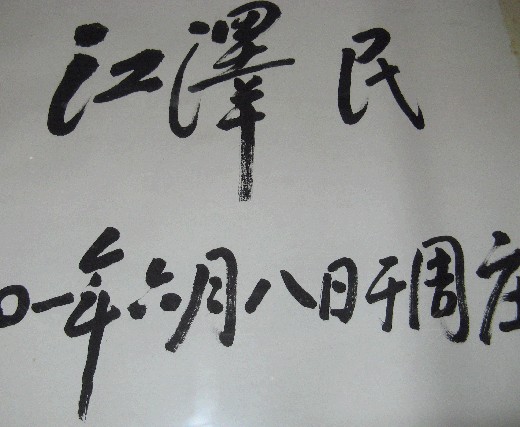 江澤民
〇一年六月八日于周庄